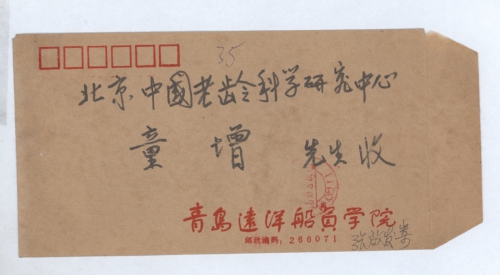 35
北京中國老龄科学研究中心
童增 先生收
青岛远洋船员学院
邮政编码：266071